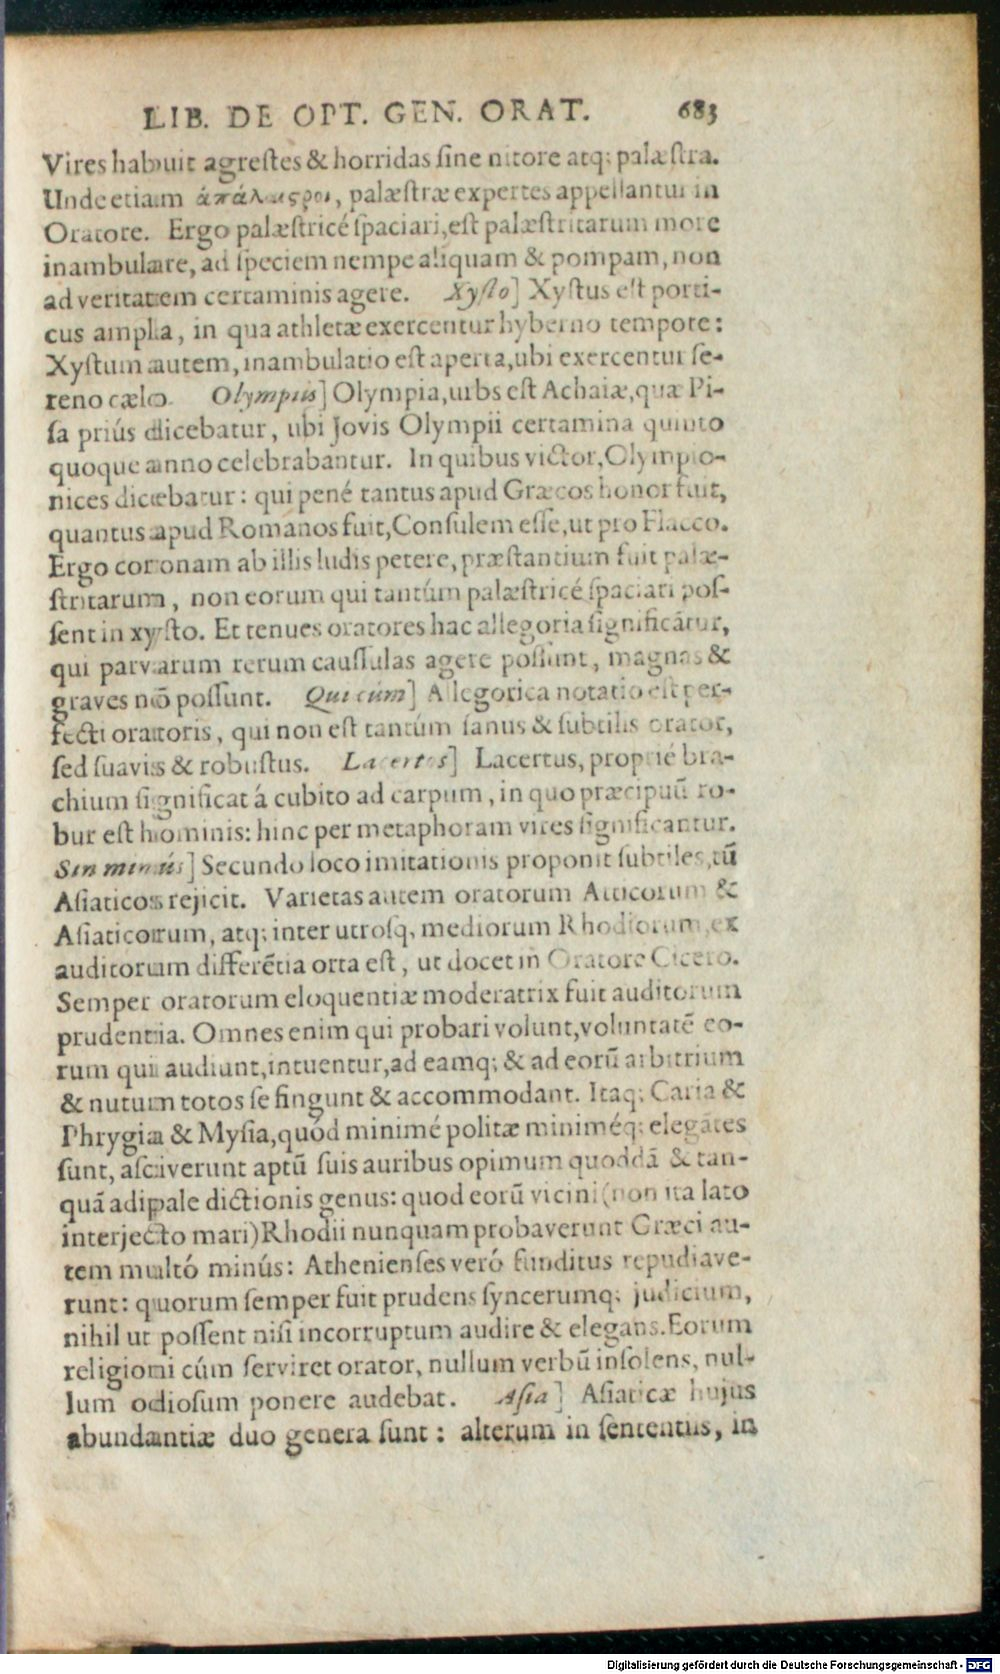 LIB. DE OPT. GEN. ORAT. 683
Vires habuit agreſtes & horridas ſine nitore atq; palæſtra.
Unde etiam ἀπάλαιςροι, palæſtræ expertes appellantur in
Oratore. Ergo palæſtricé ſpaciari, eſt palæſtritarum more
inambulare, ad ſpeciem nempe aliquam & pompam, non
ad veritatem certaminis agere. Xyſto] Xyſtus eſt porti-
cus ampla, in qua athletæ exercentur hyberno tempore:
Xyſtum autem, inambulatio eſt aperta, ubi exercentur ſe-
reno cælo. Olympiis] Olympia, urbs eſt Achaiæ, quæ Pi-
ſa priús dicebatur, ubi Jovis Olympii certamina quinto
quoque anno celebrabantur. In quibus victor, Olympio-
nices dicebatur: qui pené tantus apud Græcos honor fuit,
quantus apud Romanos fuit, Conſulem eſſe, ut pro Flacco.
Ergo coronam ab illis ludis petere, præſtantium fuit palæ-
ſtritarum, non eorum qui tantúm palæſtricé ſpaciari poſ-
ſent in xyſto. Et tenues oratores hac allegoria ſignificãtur,
qui parvarum rerum cauſſulas agere poſſunt, magnas &
graves nõ poſſunt. Qui cúm] Allegorica notatio eſt per-
fecti oratoris, qui non eſt tantúm ſanus & ſubtilis orator,
ſed ſuavis & robuſtus. Lacertos] Lacertus, proprié bra-
chium ſignificat á cubito ad carpum, in quo præcipuũ ro-
bur eſt hominis: hinc per metaphoram vires ſignificantur.
Sin minús] Secundo loco imitationis proponit ſubtiles, tũ
Aſiaticos rejicit. Varietas autem oratorum Atticorum &
Aſiaticorum, atq; inter utroſq, mediorum Rhodiorum, ex
auditorum differẽtia orta eſt, ut docet in Oratore Cicero.
Semper oratorum eloquentiæ moderatrix fuit auditorum
prudentia. Omnes enim qui probari volunt, voluntatẽ eo-
rum qui audiunt, intuentur, ad eamq; & ad eorũ arbitrium
& nutum totos ſe fingunt & accommodant. Itaq; Caria &
Phrygia & Myſia, quód minimé politæ miniméq; elegãtes
ſunt, aſciverunt aptũ ſuis auribus opimum quoddã & tan-
quã adipale dictionis genus: quod eorũ vicini (non ita lato
interjecto mari) Rhodii nunquam probaverunt Græci au-
tem multó minús: Athenienſes veró funditus repudiave-
runt: quorum ſemper fuit prudens ſyncerumq; judicium,
nihil ut poſſent niſi incorruptum audire & elegans. Eorum
religioni cúm ſerviret orator, nullum verbũ inſolens, nul-
lum odioſum ponere audebat. Aſia] Aſiaticæ hujus
abundantiæ duo genera ſunt: alterum in ſententiis, in
Digitalisierung gefördert durch die Deutsche Forschungsgemeinschaft - DFG